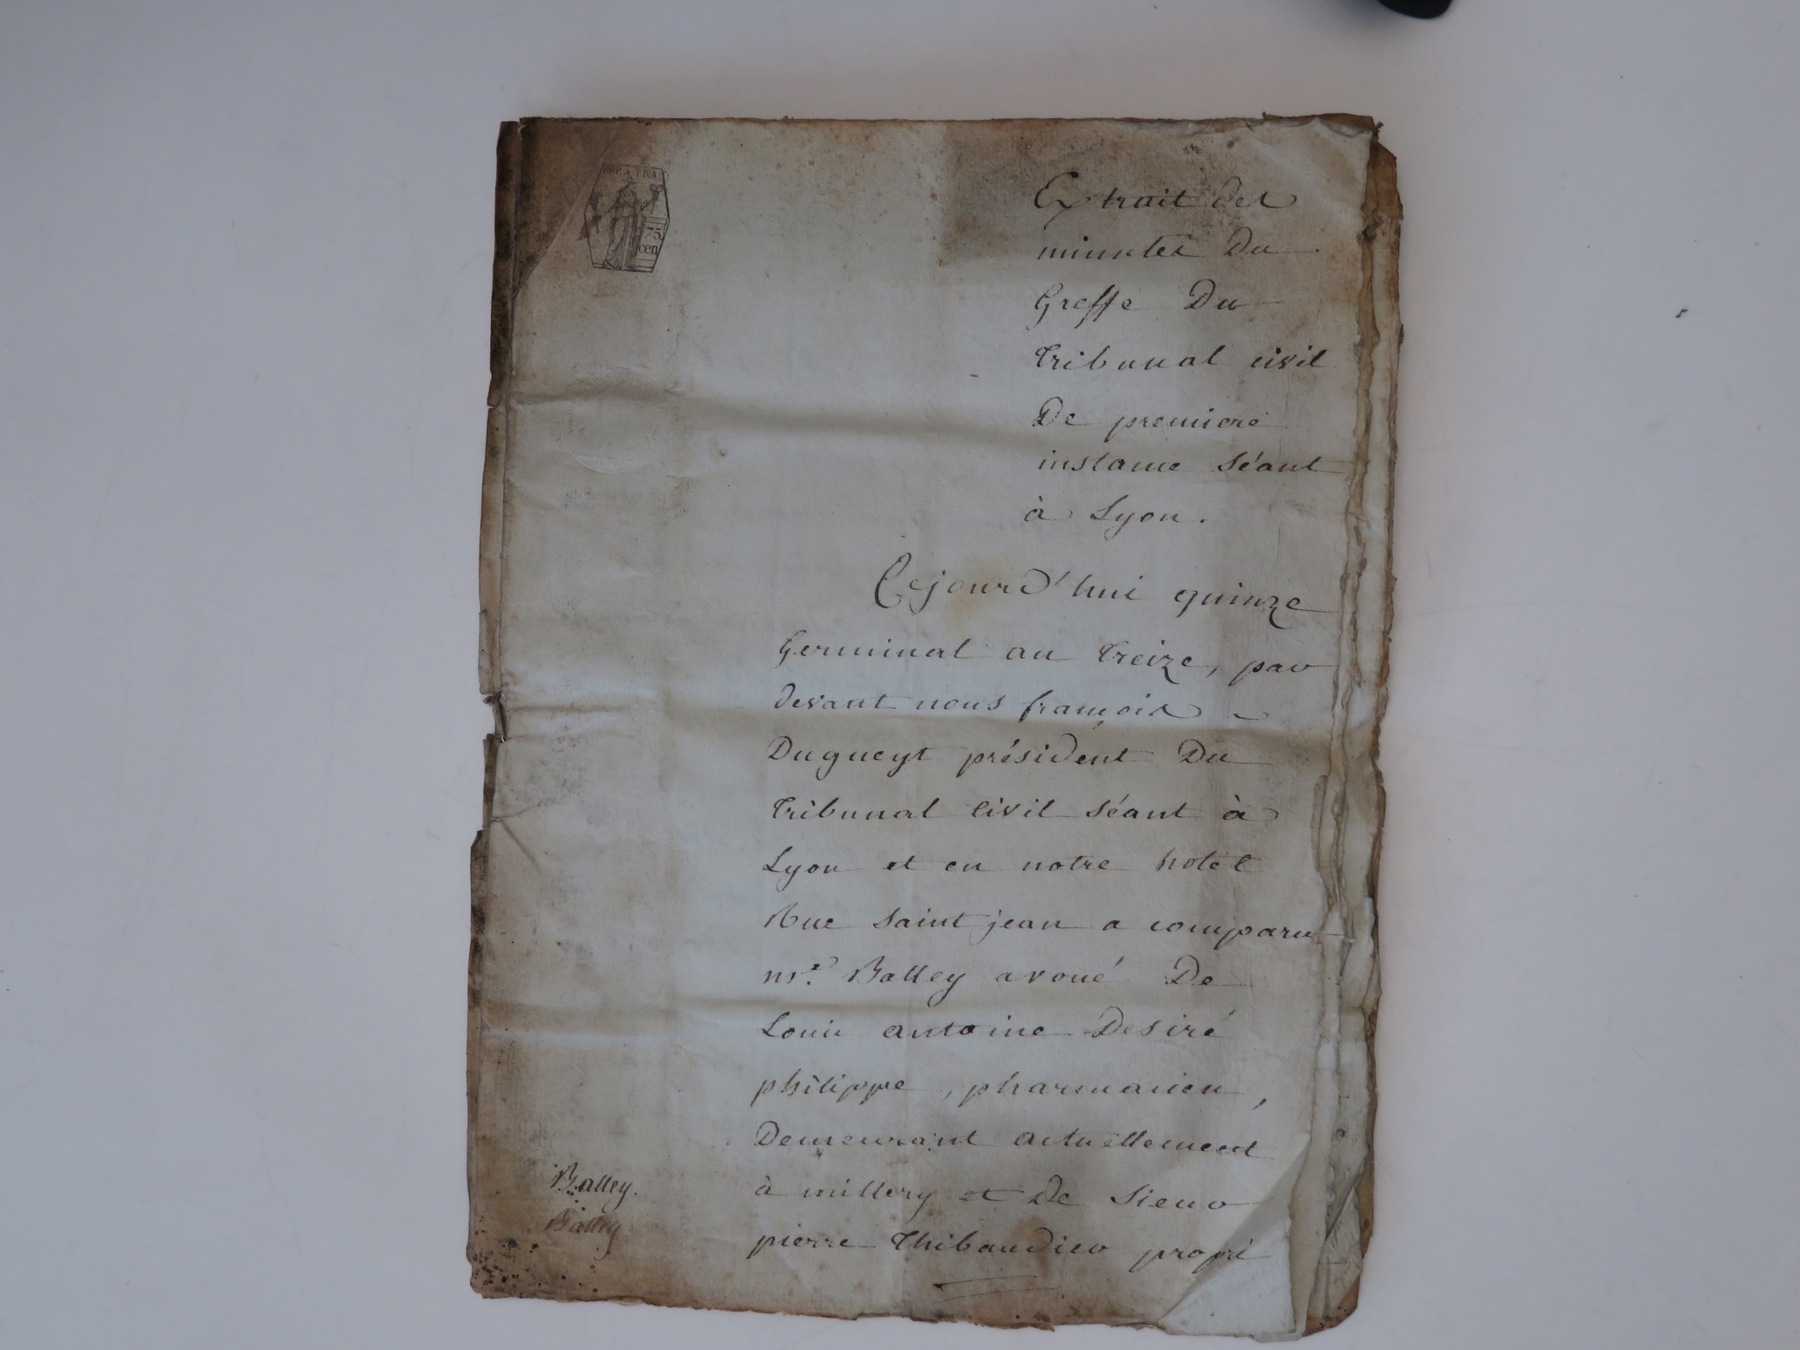 REP. FRA
75
cen
Extrait des
minutes Du
Greffe Du
Tribunal civil
De premiere
instance Séant
à Lyon.
Cejourd'hui quinze
Germinal an Treize, par
devant nous françois
Dugueyt président Du
Tribunal Civil Séant à
Lyon et en notre hotel
Rue Saint jean a comparu
mr. Balley avoué De
Louis antoine Desiré
philippe, pharmacien,
Demeurant actuellement
à millery et De Sieur
pierre Thibaudier propri
Balley.
Balley